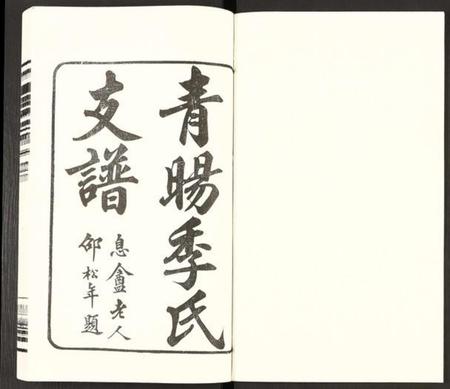 青暘季氏
支譜
息盦老人
邵松年題